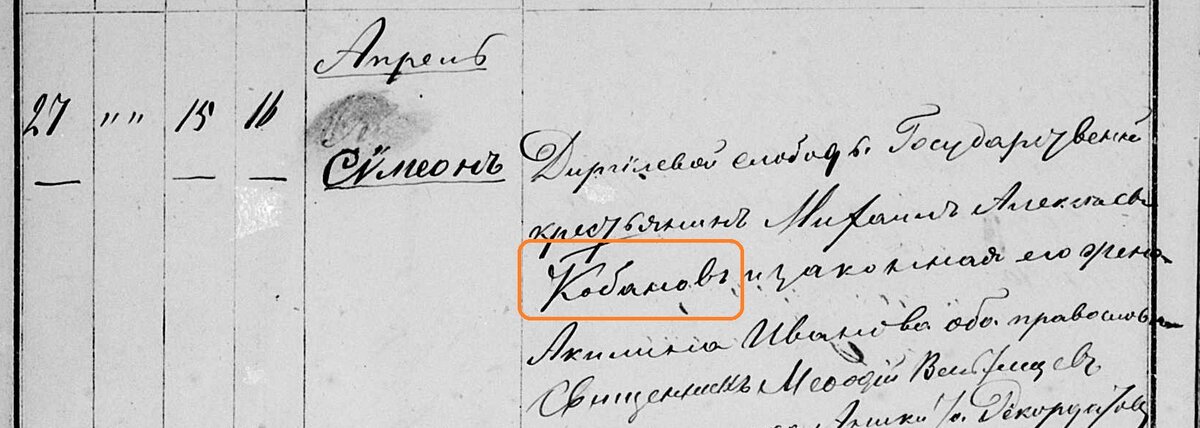 Апрель
27 „ „ 15 16
Сѷмеонъ
слободы Государственный
крестьянинъ Михаилъ Алексѣевъ
Кобановъ и законная его жена
Акилина Иванова оба православн
Священникъ Меѳодій